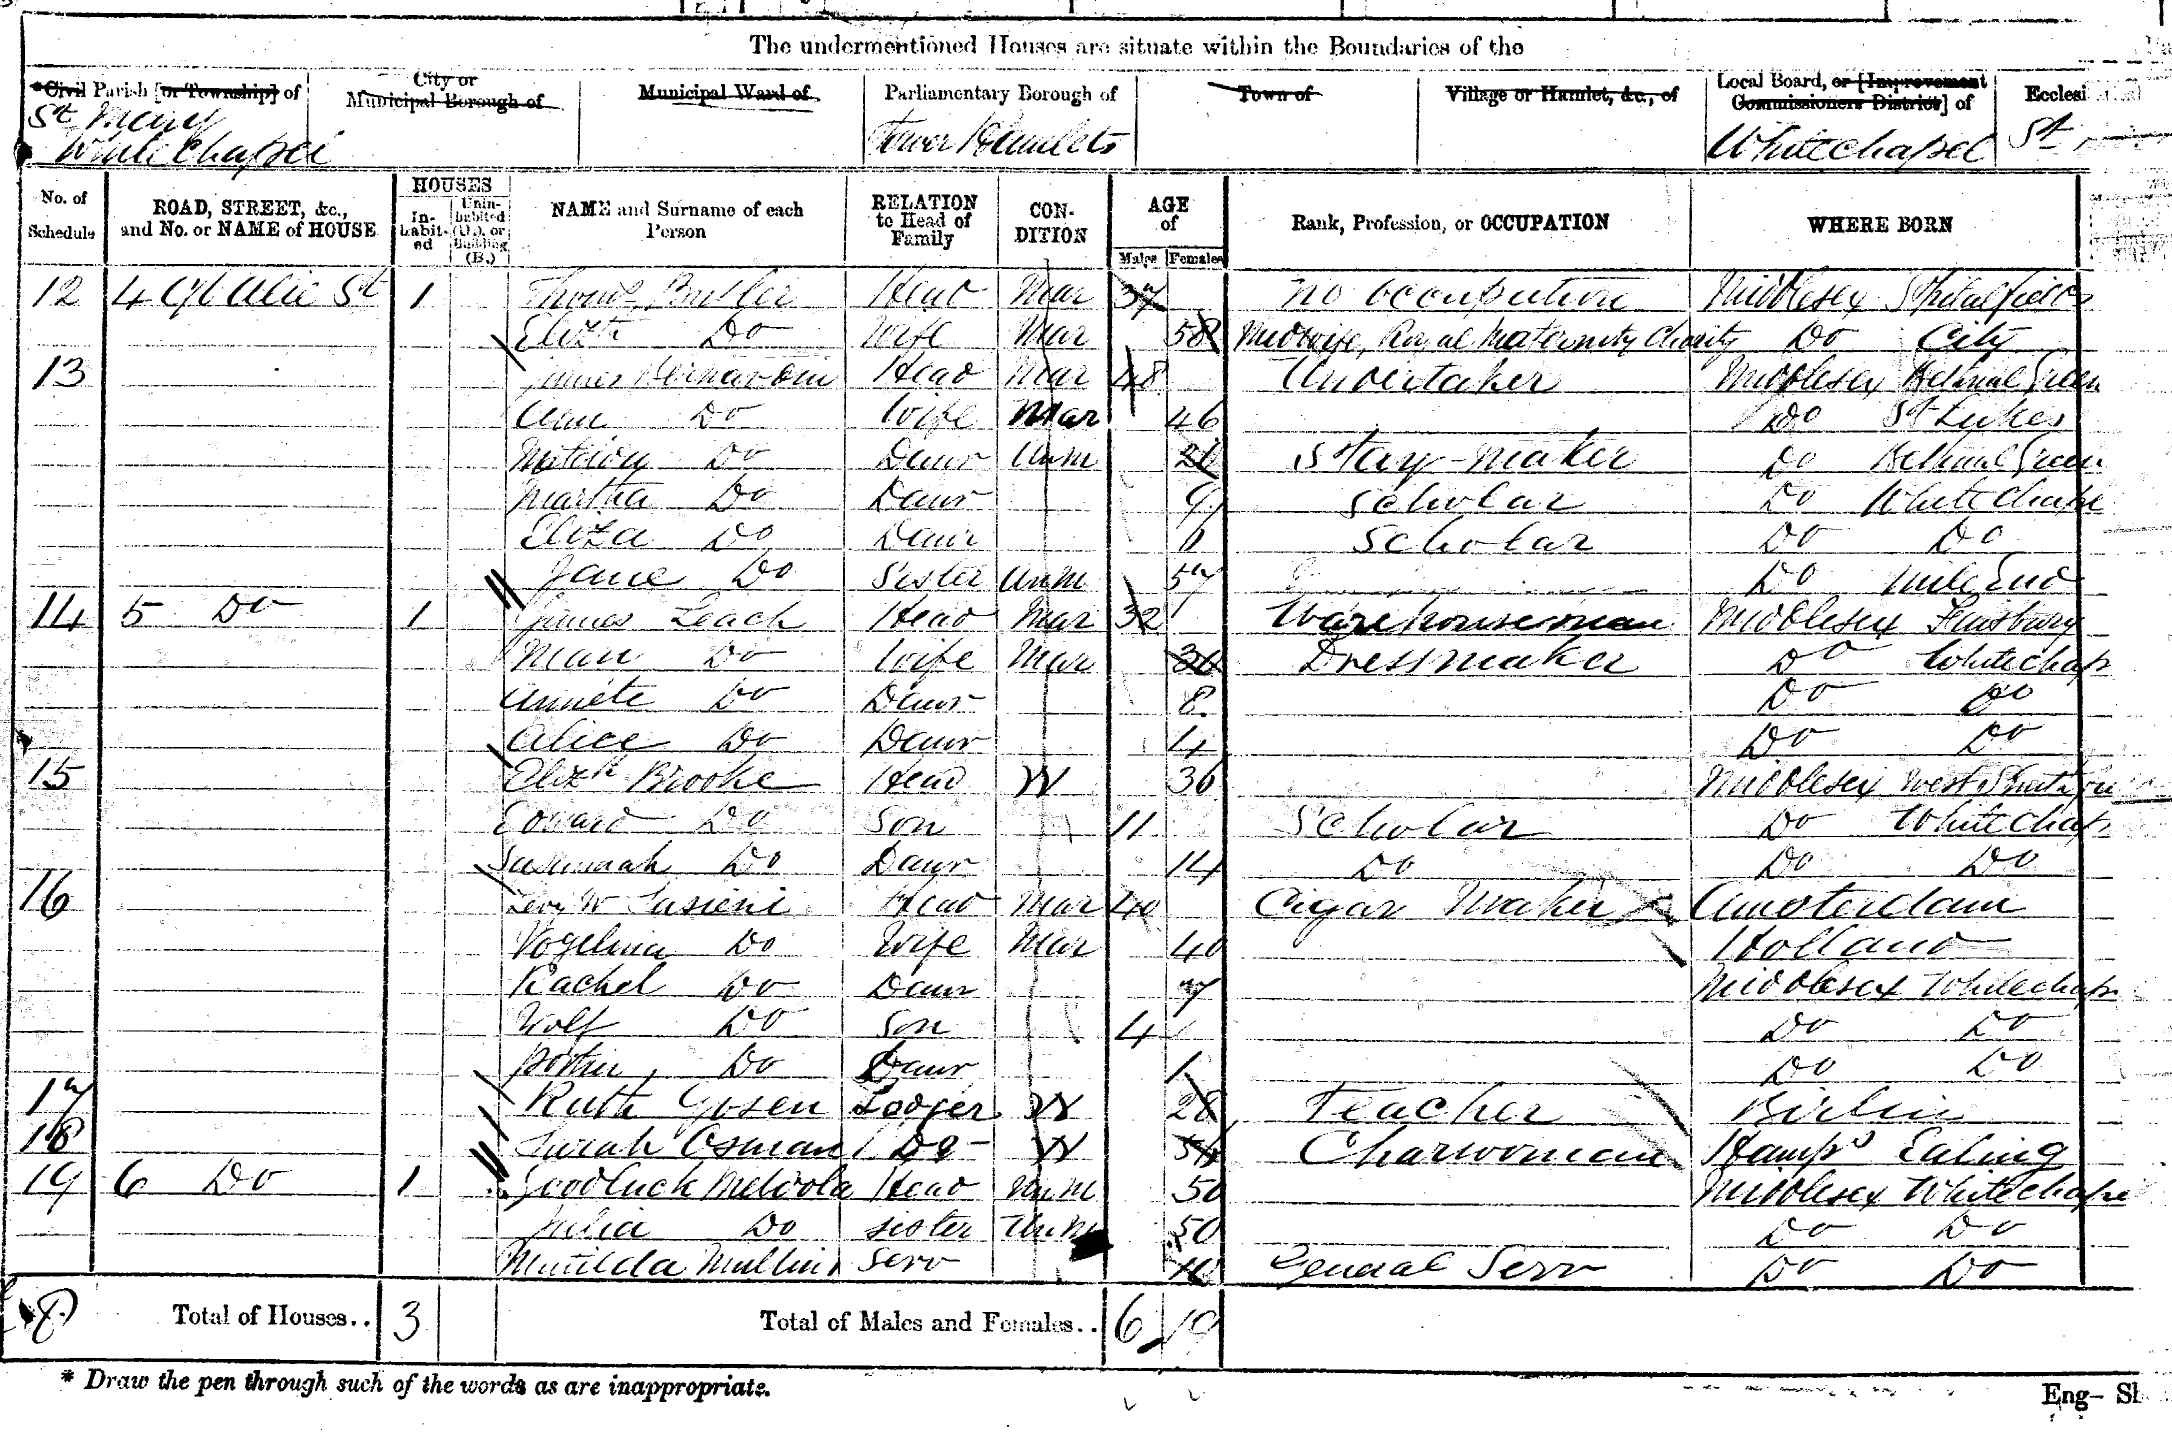 The undermentioned Houses are situate within the Boundaries of the
*Civil Parish [or Township] of
City or Municipal Borough of
Municipal Ward of
Parliamentary Borough of
Town of
Village or Hamlet, &c., of
Local Board, or [Improvement Commissioners District] of
Ecclesi
St Mary Whitechapel
Tower Hamlets
Whitechapel
St
No. of Schedule
ROAD, STREET, &c., and No. or NAME of HOUSE
HOUSES
In-habit-ed
Unin-habited (U.), or Building (B.)
NAME and Surname of each Person
RELATION to Head of Family
CON-DITION
AGE of
Males
Females
Rank, Profession, or OCCUPATION
WHERE BORN
12 4 Gt Alie St 1 Thos Butler Head Mar 37 No occupation Middlesex Spitalfields
Elizth Do Wife Mar 58 Midwife, Royal Maternity Charity Do City
13 James Bernardini Head Mar 48 Undertaker Middlesex Bethnal Green
Ann Do Wife Mar 46 Do St Lukes
Do Daur Unm Stay-maker Do Bethnal Green
Martha Do Daur 9 Scholar Do Whitechape
Eliza Do Daur Scholar Do Do
Jane Do Sister Unm 57 Do Mile End
14 5 Do 1 James Leach Head Mar 32 Warehouseman Middlesex Finsbury
Mary Do Wife Mar Dressmaker Do Whitechap
Annete Do Daur 8 Do Do
Alice Do Daur 4 Do Do
15 Elizh Brooke Head W 36 Middlesex West Smithfie
Edward Do Son 11 Scholar Do Whitechap
Susannah Do Daur 14 Do Do Do
16 Levy W Sasieni Head Mar 40 Cigar Maker Amsterdam
Vogelina Do Wife Mar 40 Holland
Rachel Do Daur 7 Middlesex Whitechap
Wolf Do Son 4 Do Do
Do Daur 1 Do Do
17 Ruth Gosen Lodger W 28 Teacher Birlin
18 Sarah Osman Do W 54 Charwoman Hamps Ealing
19 6 Do 1 Goodluck Meldola Head Unm 50 Middlesex Whitechape
Julia Do sister Unm 50 Do Do
Matilda Mullins Serv General Serv Do Do
Total of Houses.. 3
Total of Males and Females.. 6 19
* Draw the pen through such of the words as are inappropriate.
Eng- Sh